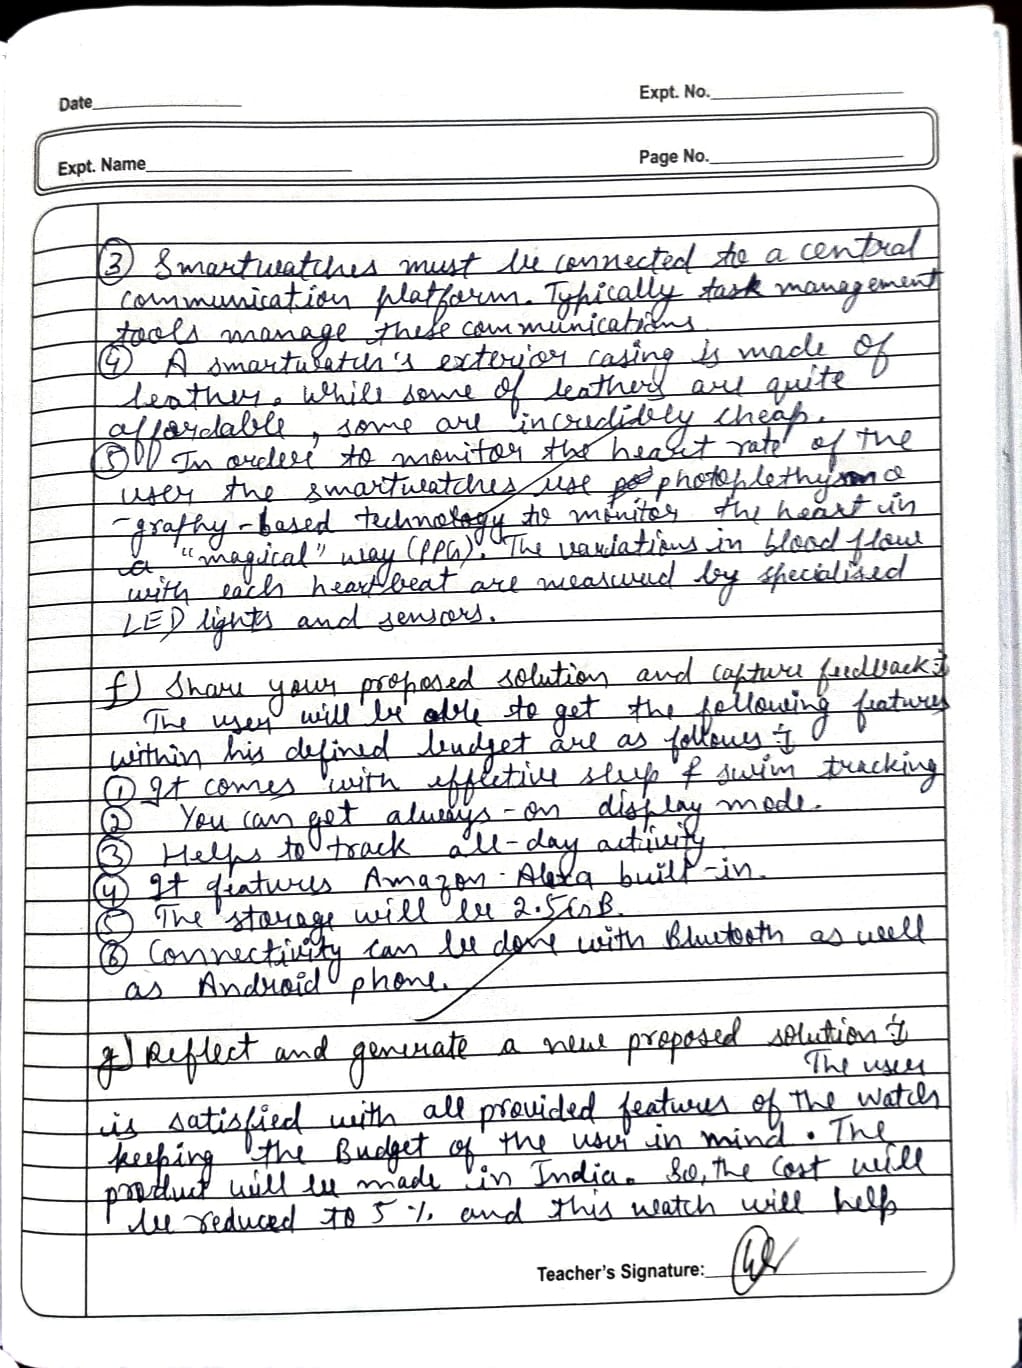 Date
Expt. No.
Expt. Name
Page No.
③ Smartwatches must be connected to a central
communication platform. Typically task management
tools manage these communications.
④ A smartwatch's exterior casing is made of
leather. While some of leathers are quite
affordable, some are incredibly cheap.
⑤ In order to monitor the heart rate of the
user the smartwatches use photoplethysmo
-graphy-based technology to monitor the heart in
a "magical" way (PPG). The variations in blood flow
with each heartbeat are measured by specialised
LED lights and sensors.
f) Share your proposed solution and capture feedback:-
The user will be able to get the following features
within his defined budget are as follows:-
① It comes with effective sleep & swim tracking
② You can get always-on display mode.
③ Helps to track all-day activity.
④ It features Amazon-Alexa built-in.
⑤ The storage will be 2.5GB.
⑥ Connectivity can be done with Bluetooth as well
as Android phone.
g) Reflect and generate a new proposed solution:-
The user
is satisfied with all provided features of the watch
keeping the Budget of the user in mind. The
product will be made in India. So, the cost will
be reduced to 5% and this watch will help
Teacher's Signature: